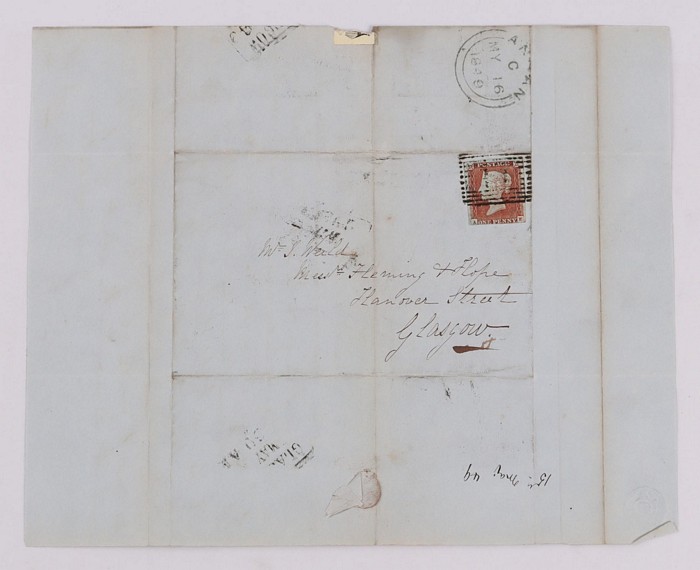 ANNAN
C
MY 16
1849
POSTAGE
ONE PENNY
Mr. J. Weild
Messrs. Fleming & Hope
Hanover Street
Glasgow
GLA
MAY
15th May 49